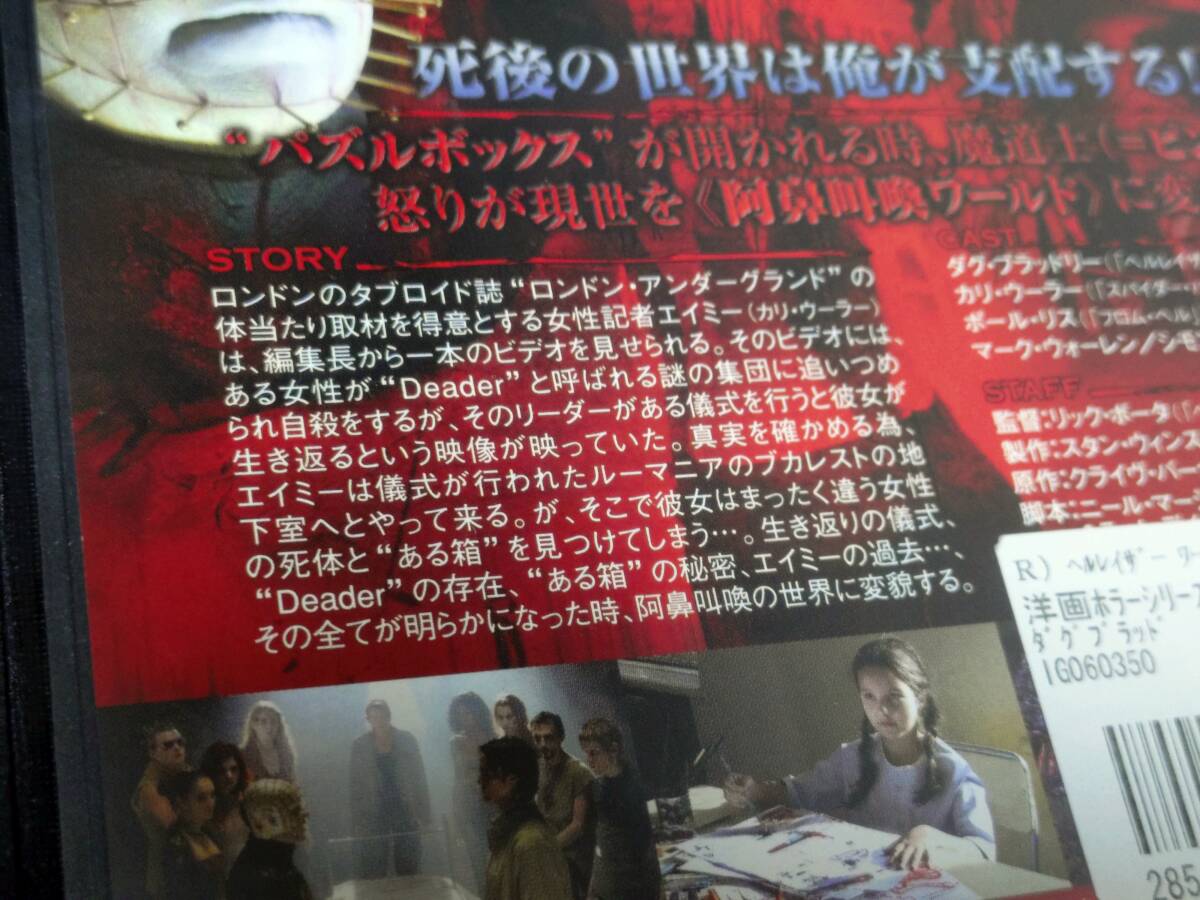 死後の世界は俺が支配する!
“パズルボックス”が開かれる時、魔道士(=ピン
怒りが現世を《阿鼻叫喚ワールド》に変
STORY
ロンドンのタブロイド誌“ロンドン・アンダーグランド”の
体当たり取材を得意とする女性記者エイミー(カリ・ウーラー)
は、編集長から一本のビデオを見せられる。そのビデオには、
ある女性が“Deader”と呼ばれる謎の集団に追いつめ
られ自殺をするが、そのリーダーがある儀式を行うと彼女が
生き返るという映像が映っていた。真実を確かめる為、
エイミーは儀式が行われたルーマニアのブカレストの地
下室へとやって来る。が、そこで彼女はまったく違う女性
の死体と“ある箱”を見つけてしまう…。生き返りの儀式、
“Deader”の存在、“ある箱”の秘密、エイミーの過去…、
その全てが明らかになった時、阿鼻叫喚の世界に変貌する。
CAST
ダグ・ブラッドリー(「ヘルレイザ
カリ・ウーラー(「スパイダー・
ポール・リス(「フロム・ヘル」
マーク・ウォーレン/シモ
STAFF
監督:リック・ボータ(「
製作:スタン・ウィンス
原作:クライヴ・バー
脚本:ニール・マー
R) ヘルレイザー ワー
洋画ホラーシリーズ
ダグブラッド
IG060350
285